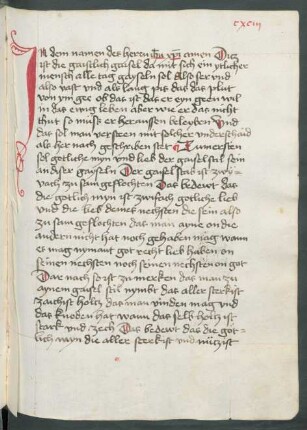 cxciii
In dem namen des herren Ihu xpi amen Diz
ist die gaistlich gaisel da mit sich ein ytlicher
mensch alle tag gayseln sol Also ser vnd
also vast vnd als lang pis das das plut
von ym gee ob das ist das er eyn geen wil
in das ewig leben aber wie er das nicht
thut so muss er heraussen beleyben Vnd
das sol man versteen mit solcher vnderschaid
als her nach geschriben stet Zu dem ersten
sol gotliche myn vnd lieb der gaiselstil sein
an diser gayseln Der gaiselstab ist zwy
vach zu sam geflochten Das bedewt das
die gotlich myn ist zwisch gotliche lieb
vnd die lieb deines nechsten die sein also
zu sam geflochten das man ayne on die
andern nicht hat noch gehaben mag wann
es mag nymant got recht lieb haben on
seinen nechsten noch seinen nechsten on got
Dar nach so ist zu mercken das man zu
aynem gaisel stil nymbt das aller sterkist
zaechst holtz das man vinden mag vnd
das knoden hat wann das selb holtz ist
starck vnd zech Das bedewt das die got
lich myn die aller sterkist vnd nutzist